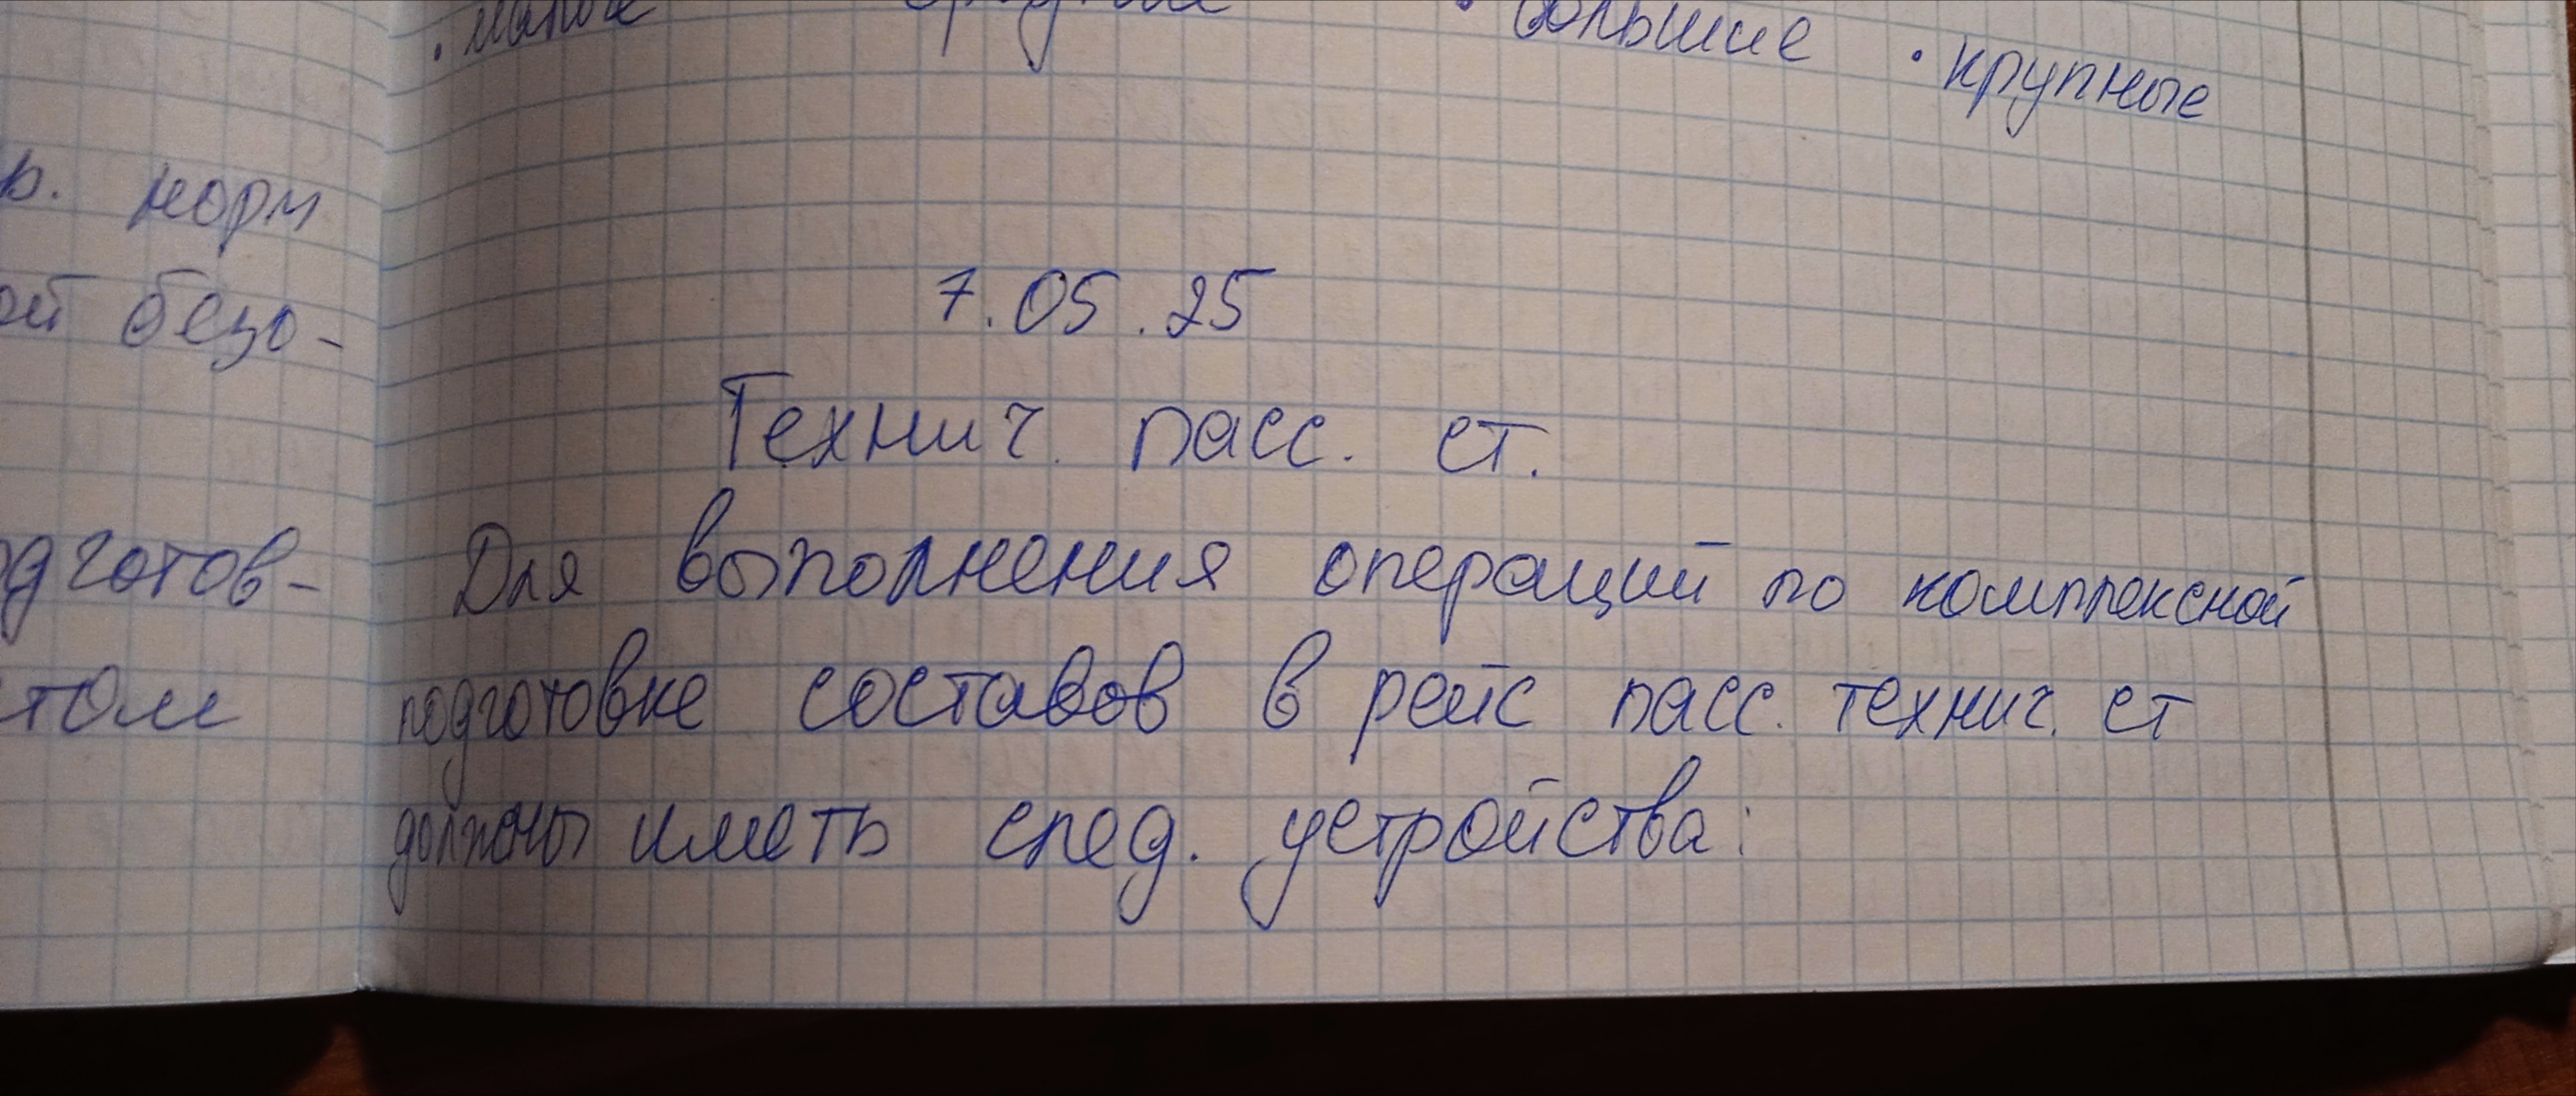 · малые средние · большие · крупные
р. норм
ой безо-
7.05.25
Технич. пасс. ст.
одготов-
Для выполнения операций по комплексной
том
подготовке составов в рейс пасс. технич. ст
должны иметь спец. устройства: